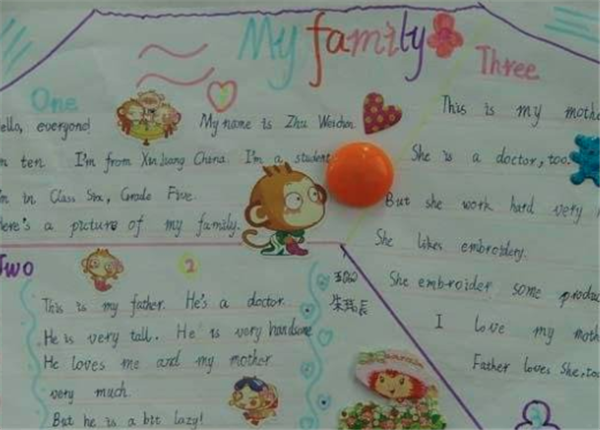 My family
One
ello, everyone! My name is Zhu Weichen.
m ten. I'm from XinJiang China. I'm a student
m in Class Six, Grade Five.
here's a picture of my family.
Two
2
This is my father. He's a doctor.
He is very tall. He is very handsome
He loves me and my mother
very much.
But he is a bit lazy!
Three
This is my mothe
She is a doctor, too.
But she work hard very
She likes embroidery.
She embroider some produc
I love my moth
Father loves She, too